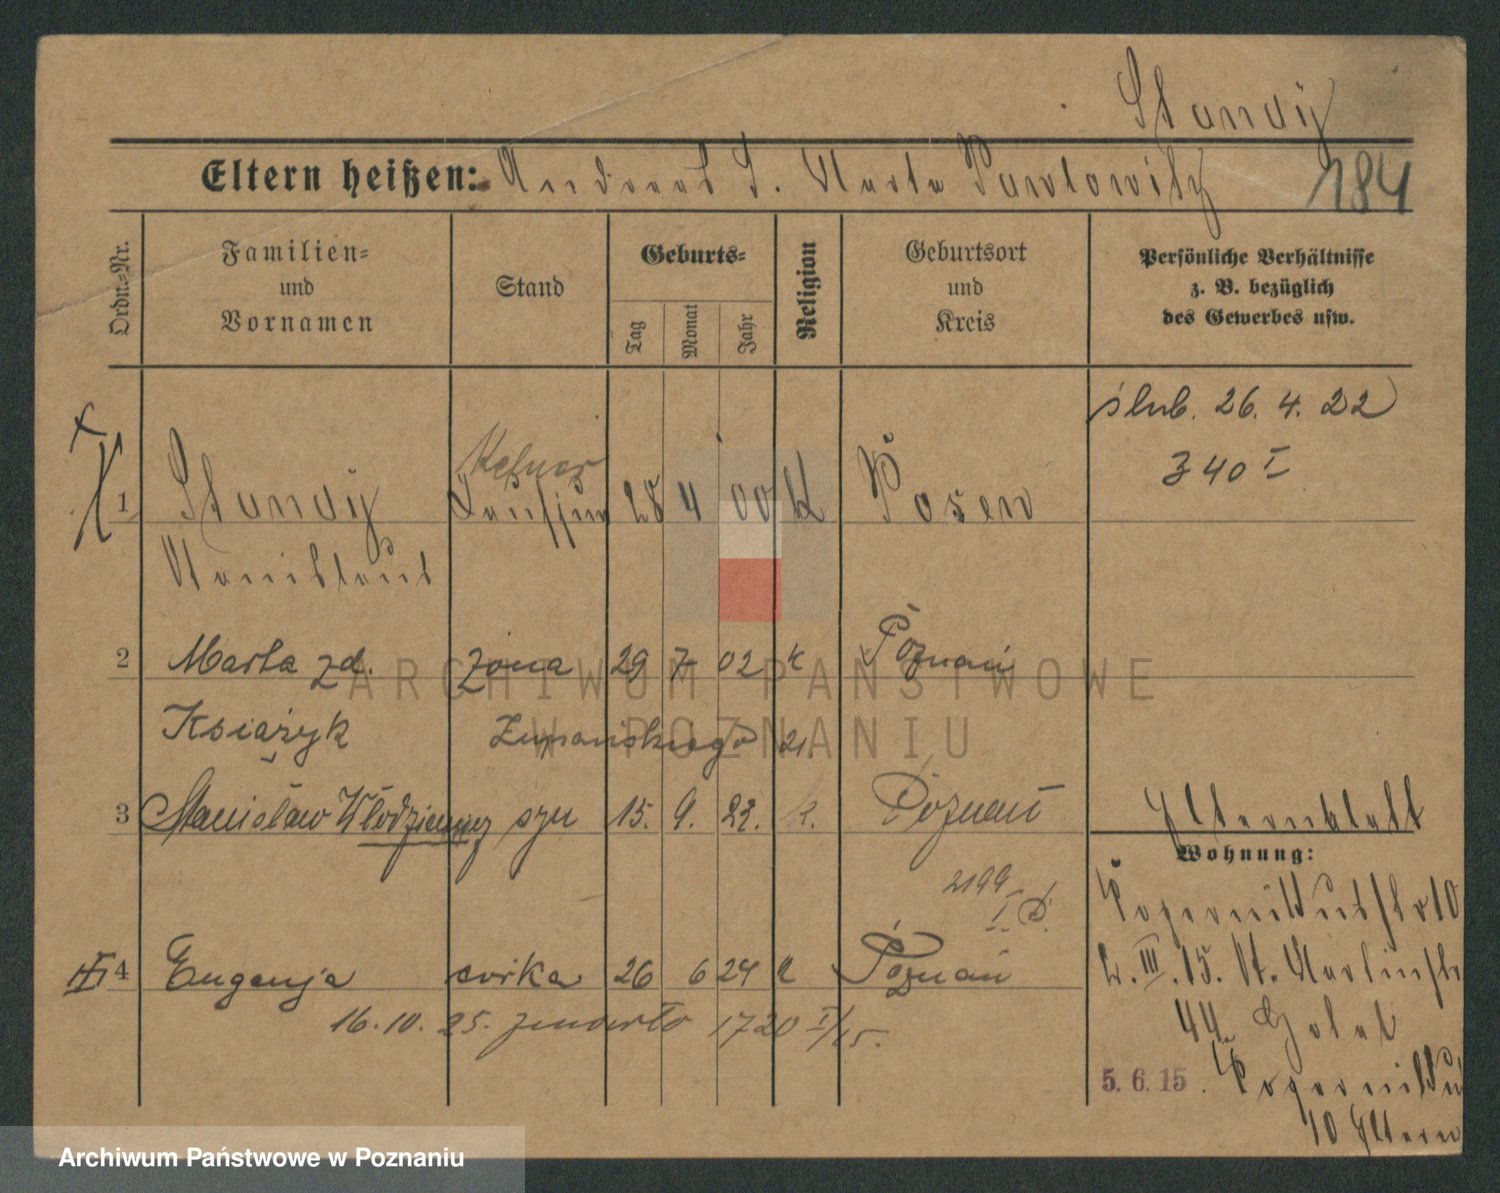 Standy
Eltern heißen: Andreas S. Marta Pawlowitz
184
Ordn.=Nr.
Familien=
und
Vornamen
Stand
Geburts=
Tag
Monat
Jahr
Religion
Geburtsort
und
Kreis
Persönliche Verhältnisse
z. B. bezüglich
des Gewerbes usw.
ślub. 26. 4. 22
340 I
Kelner
1 Standy 28 4 00 K Posen
Stanislaus
2 Marta zd. żona 29 7 02 k Poznań
Książyk Żupańskiego 21.
3 Stanisław Włodzimierz syn 15. 9. 23. k. Poznań
Elternblatt
Wohnung:
2199
I D.
4 Eugenja córka 26 6 24 k Poznań
16. 10. 25. zmarła 1720 I/25.
44
5. 6. 15
10 Eltern
ARCHIWUM PAŃSTWOWE
W POZNANIU
Archiwum Państwowe w Poznaniu